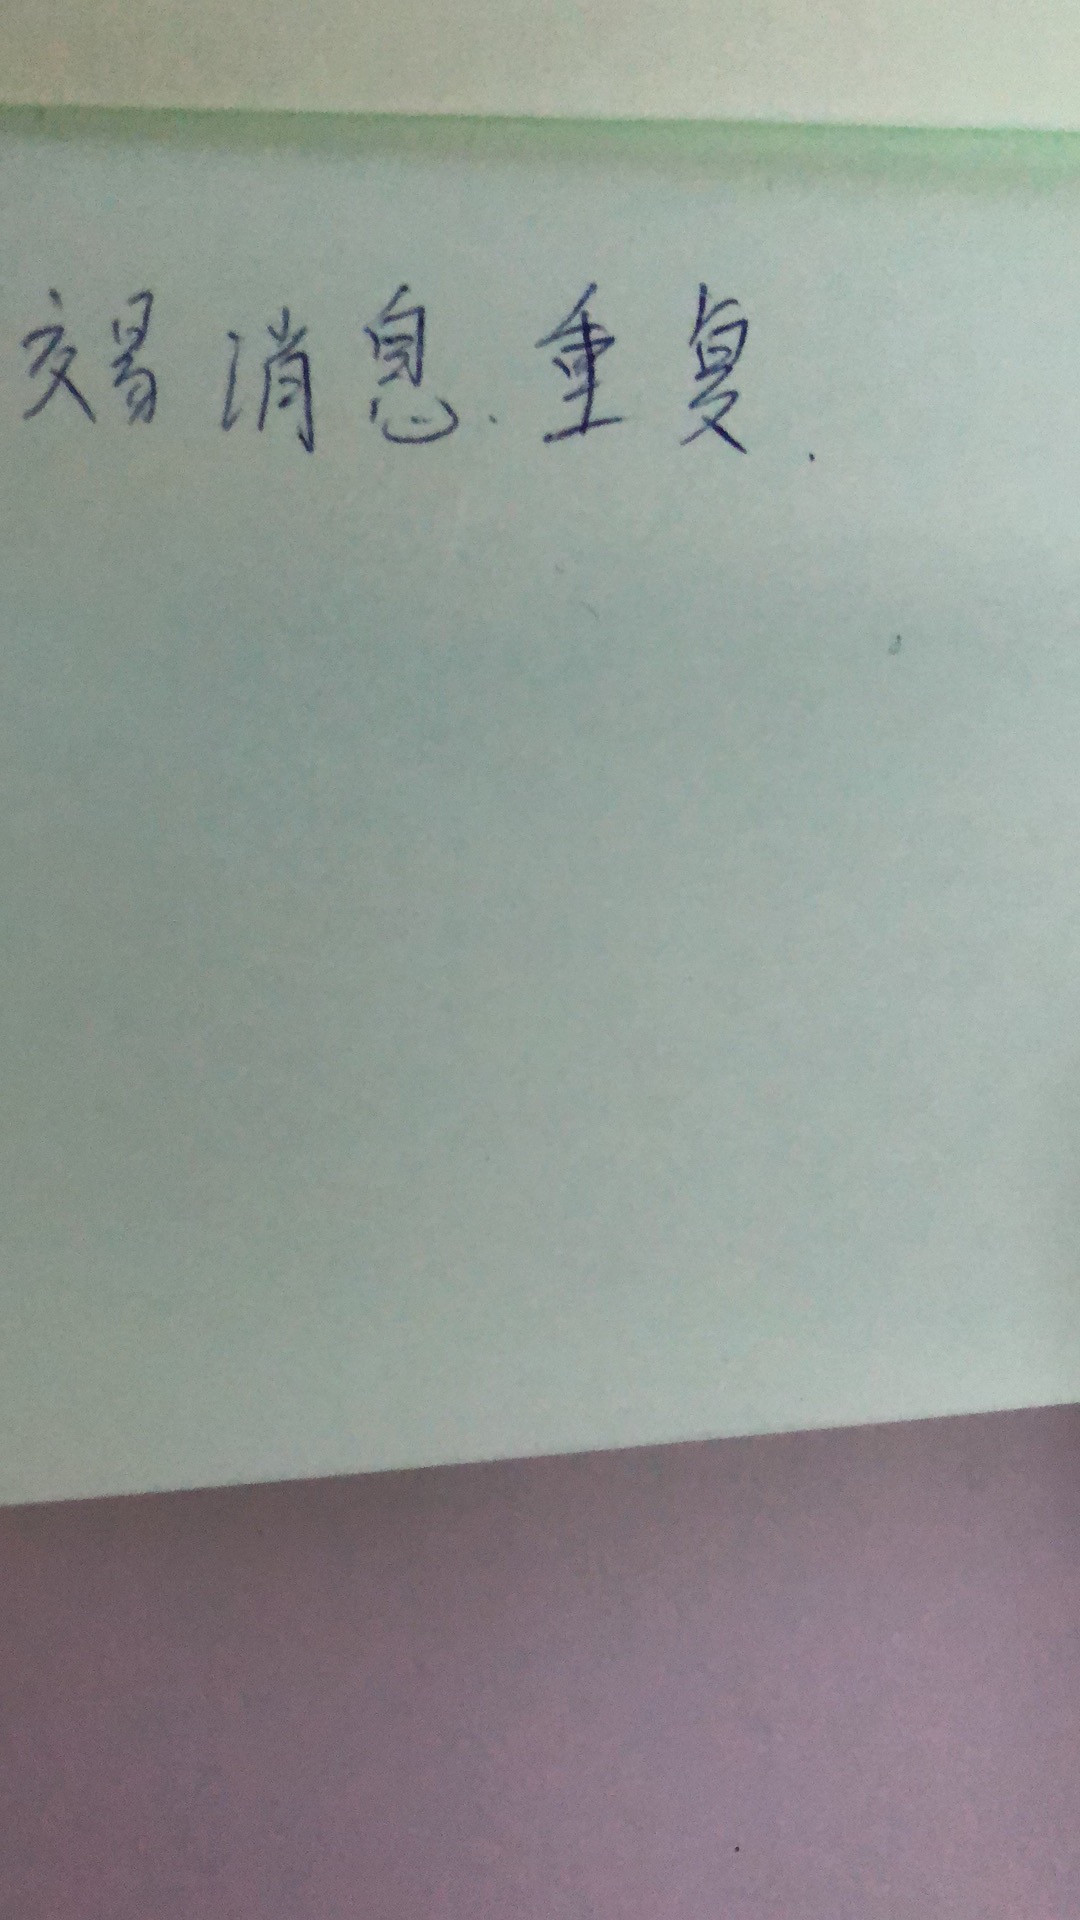 交易消息.重复.